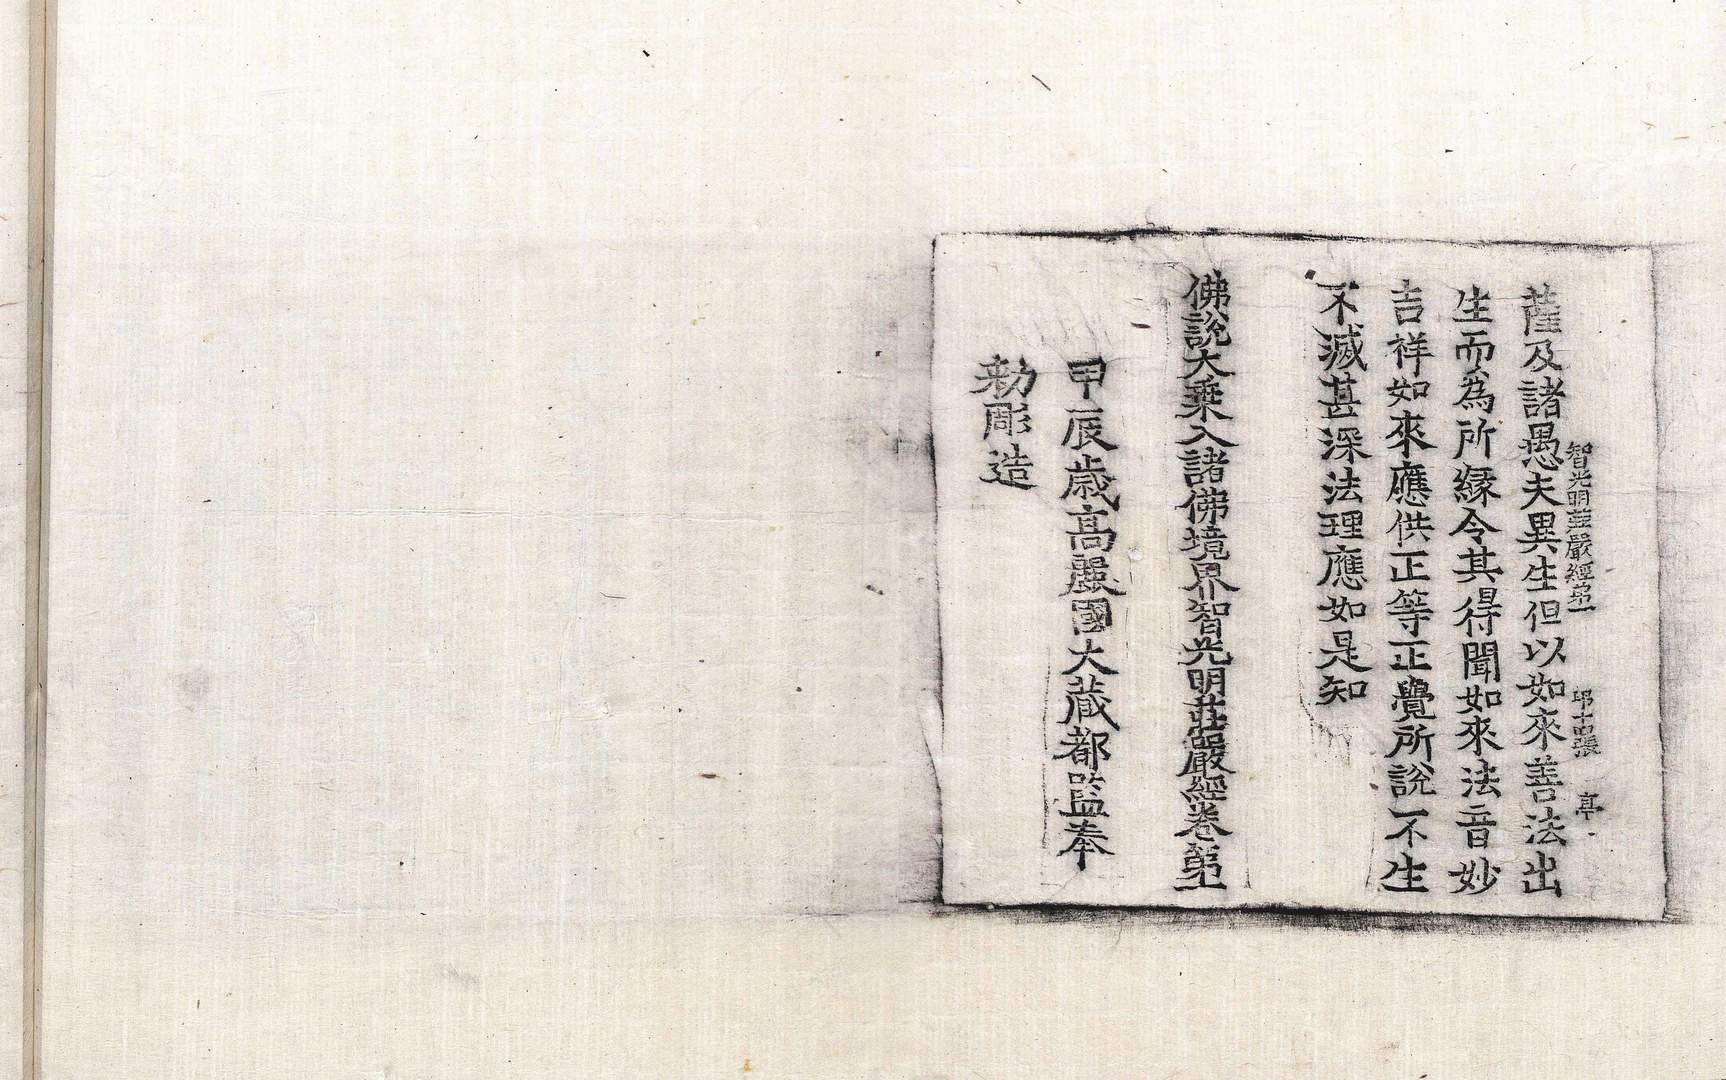 智光明莊嚴經第一 第十四張 亭
薩及諸愚夫異生但以如來善法出
生而為所緣令其得聞如來法音妙
吉祥如來應供正等正覺所說一不生
一不滅甚深法理應如是知
佛說大乗入諸佛境界智光明莊嚴經卷第一
甲辰歲高麗國大藏都監奉
勑彫造